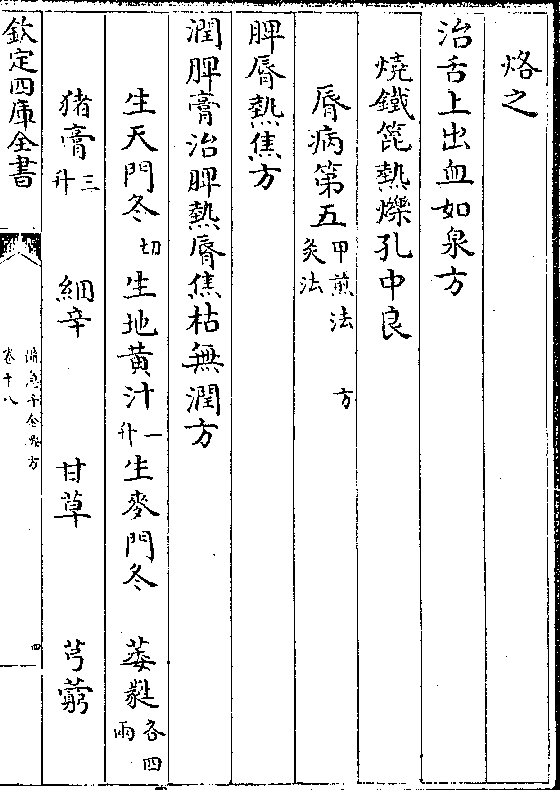 烙之
治舌上出血如泉方
燒鐵篦熱爍孔中良
脣病第五甲煎法 方
灸法
脾脣熱焦方
潤脾膏治脾熱脣焦枯無潤方
生天門冬切生地黄汁一升生麥門冬 萎蕤各四兩
猪膏三升 細辛 甘草 芎藭
欽定四庫全書
備急千金要方
卷十八
四